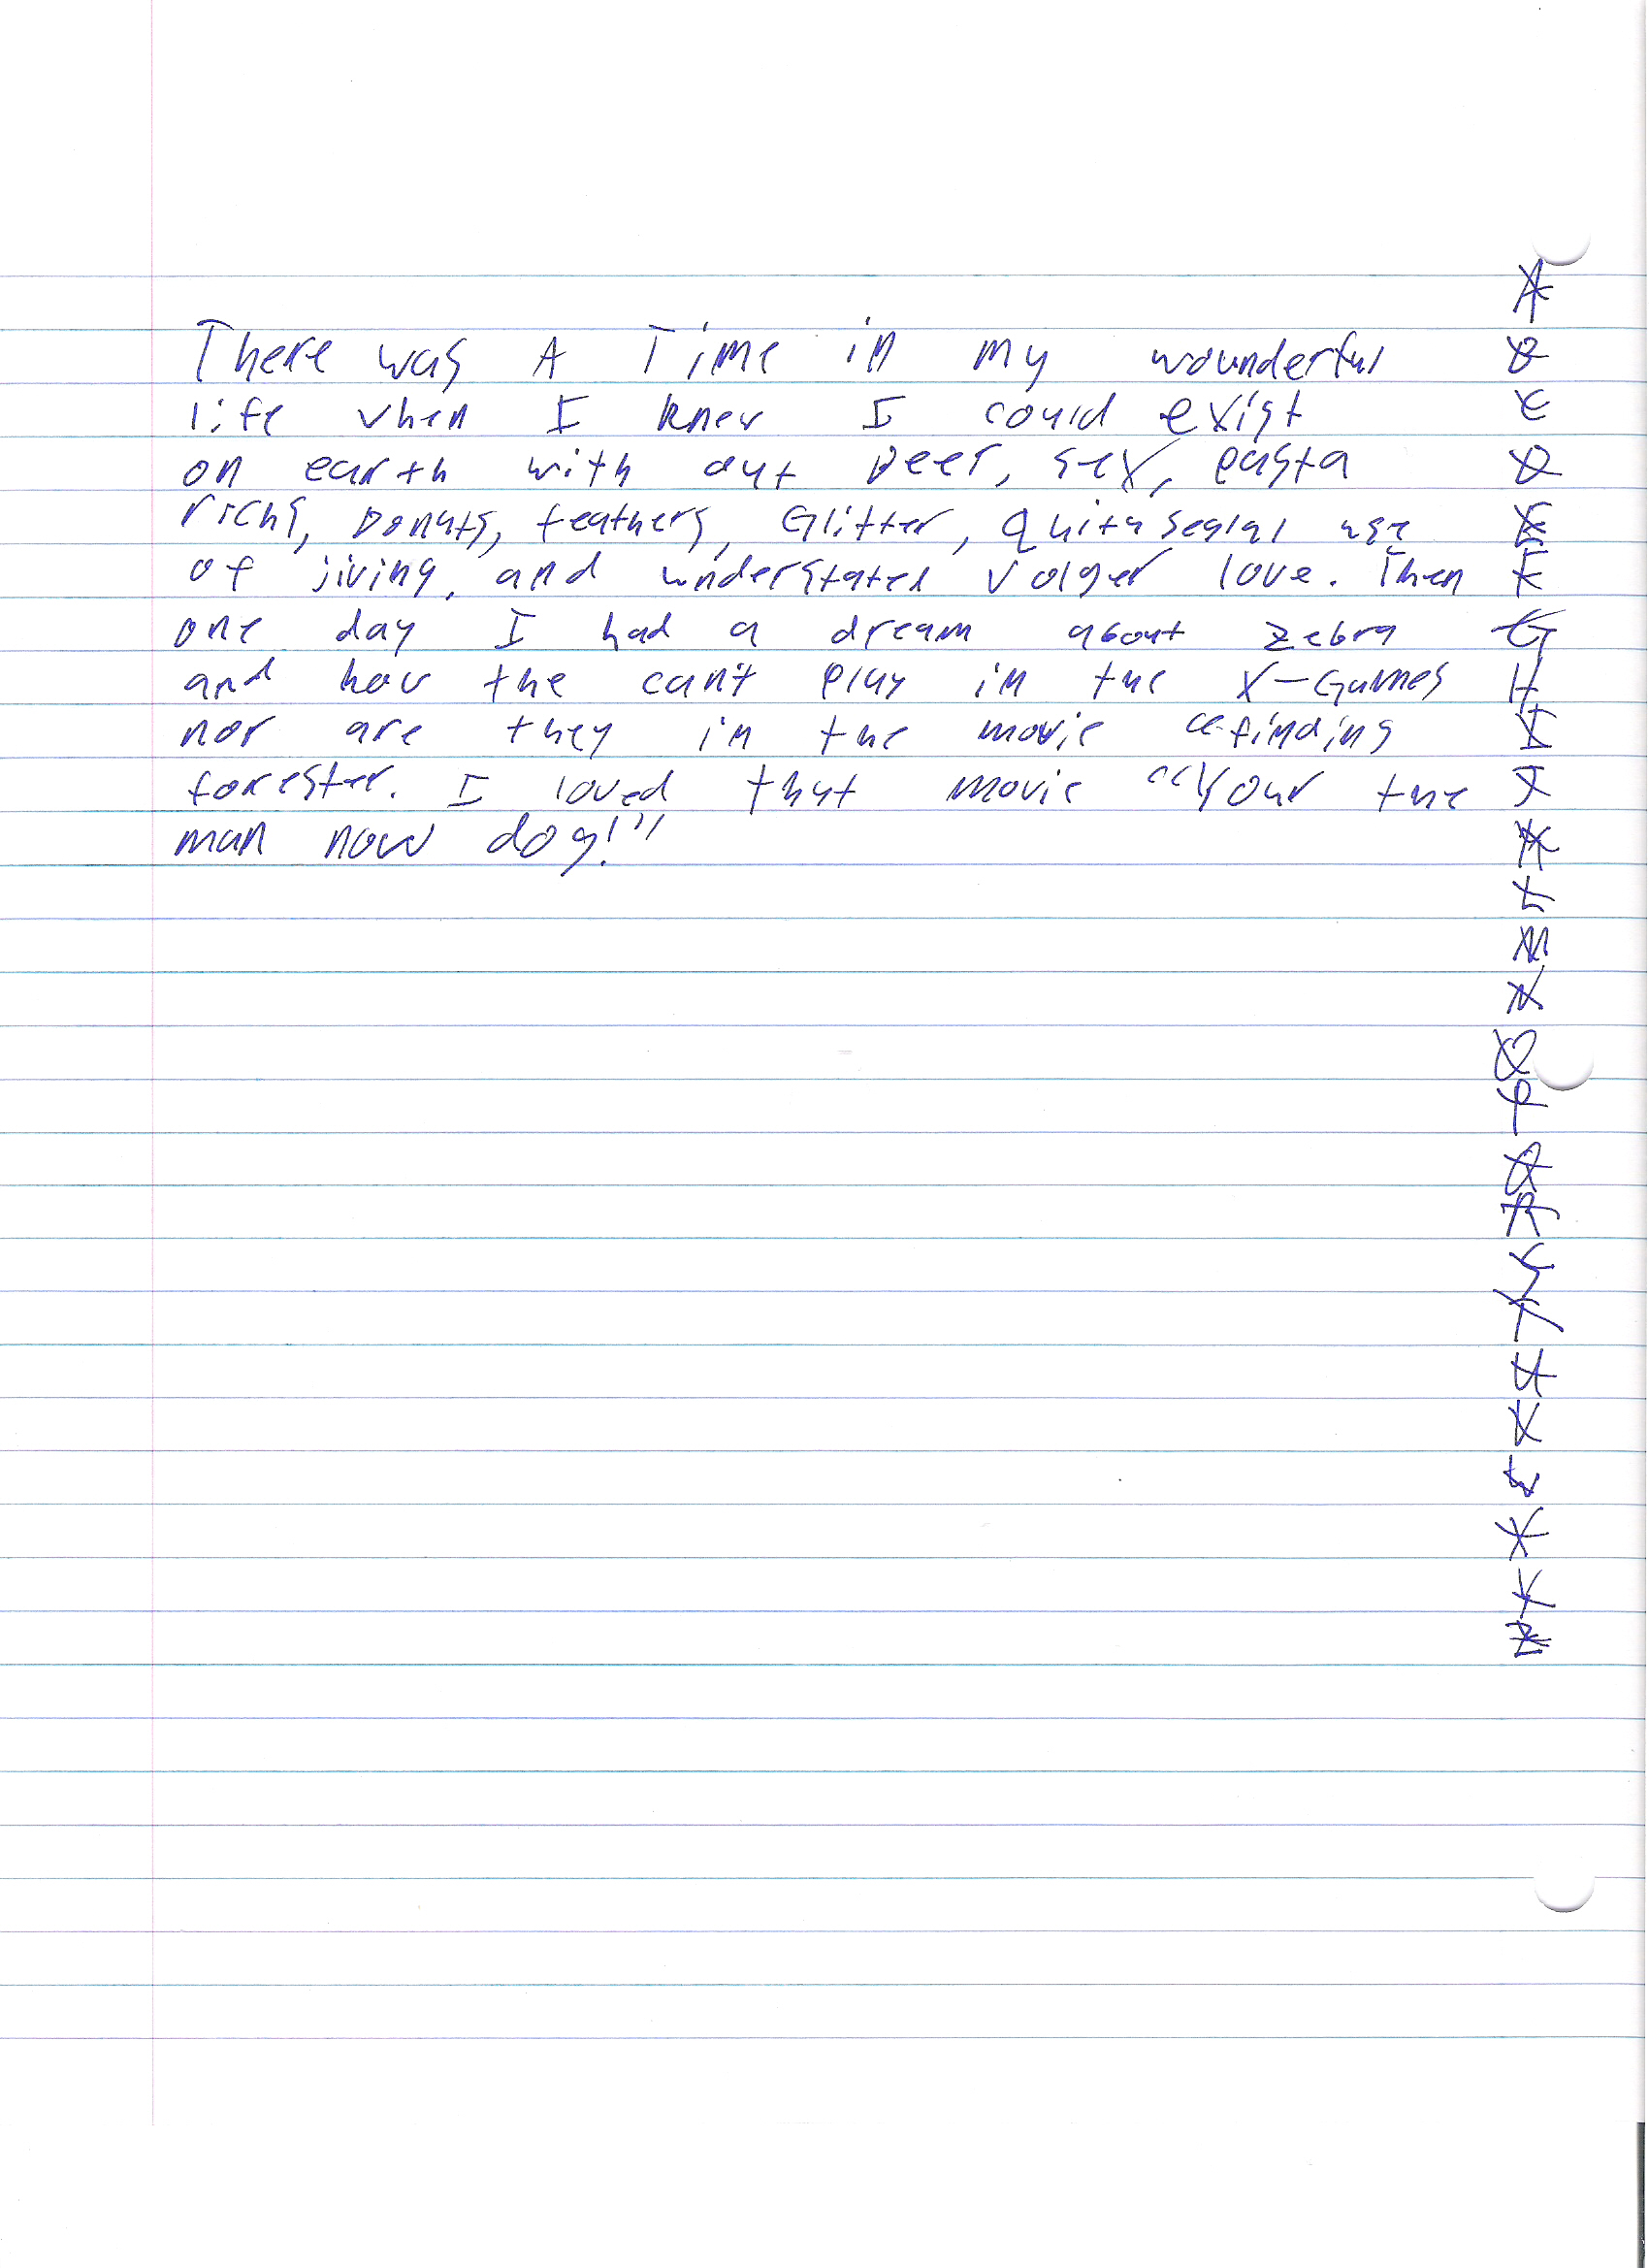 There was A Time in my wounderful
life when I knew I could exist
on earth with out Beer, sex, pasta
richs, Donuts, feathers, Glitter, use
of jiving, and understated volger love. Then
one day I had a dream about zebra
and how the can't play in the X-Games
nor are they in the movie "finding
forester. I loved that movie "Your the
man now dog!"
A
B
C
D
E
F
G
H
I
J
K
L
M
N
O
P
Q
R
S
T
U
V
W
X
Y
Z